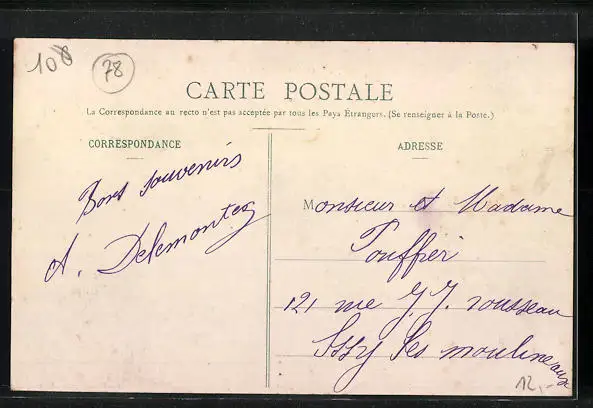 108
78
CARTE POSTALE
La Correspondance au recto n'est pas acceptée par tous les Pays Étrangers. (Se renseigner à la Poste.)
CORRESPONDANCE
Bons souvenirs
A. Delemontez
ADRESSE
Monsieur et Madame
Touffier
121 rue J. J. rousseau
Issy les moulineaux
12,-